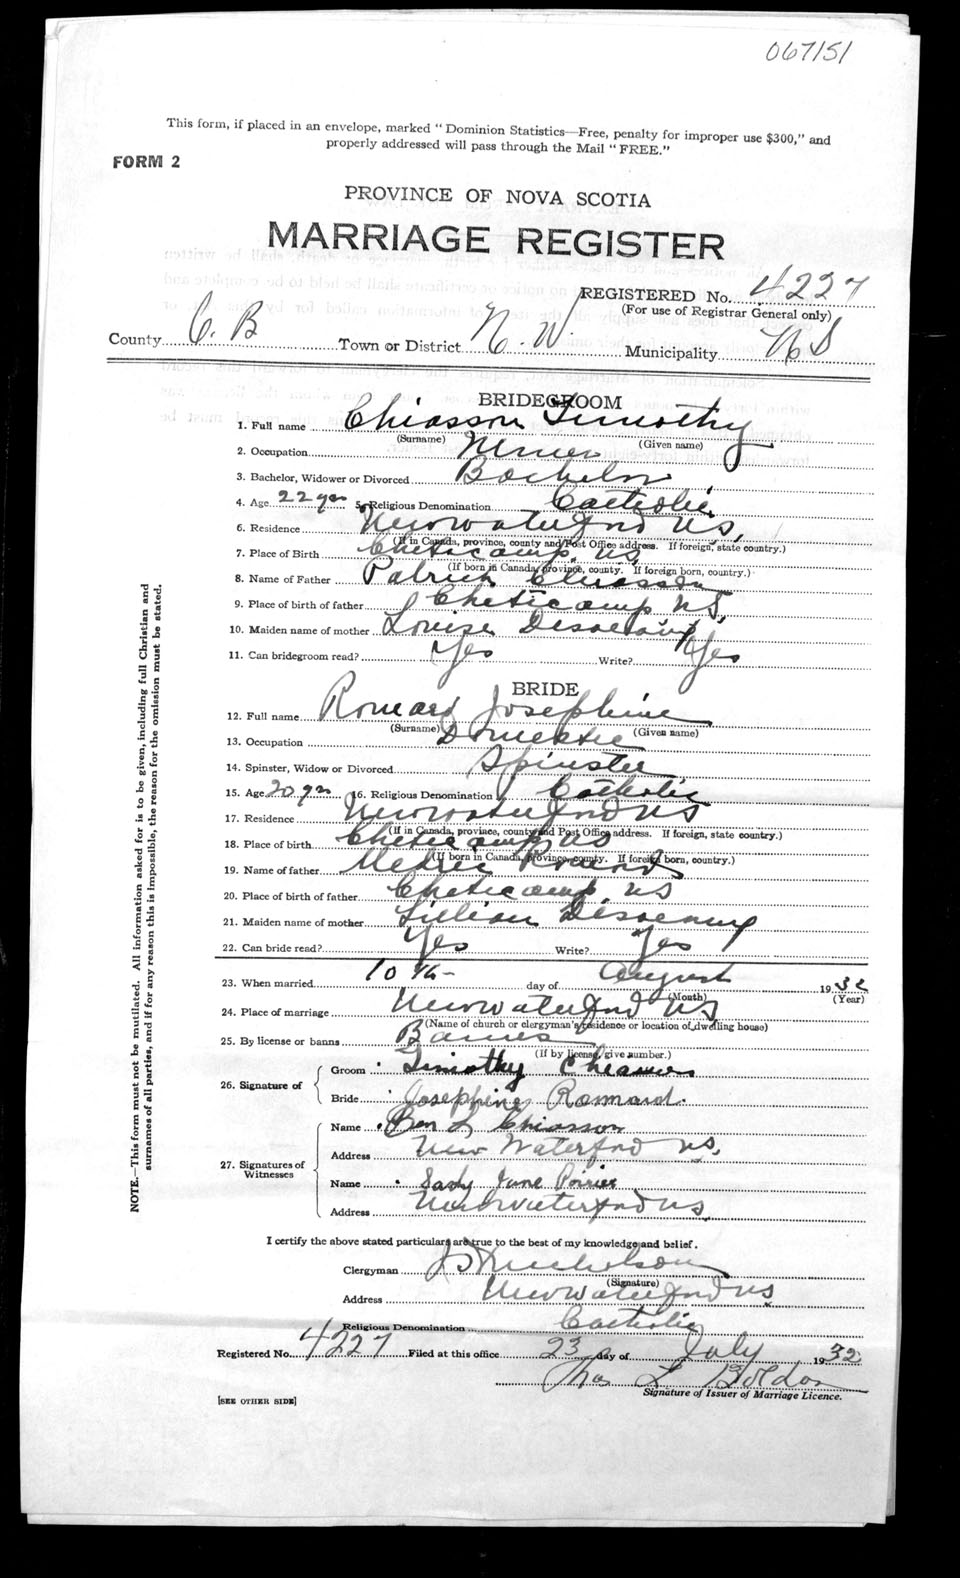 067151
This form, if placed in an envelope, marked "Dominion Statistics—Free, penalty for improper use $300," and
properly addressed will pass through the Mail "FREE."
FORM 2
PROVINCE OF NOVA SCOTIA
MARRIAGE REGISTER
REGISTERED No. 4227
(For use of Registrar General only)
County C. B Town or District N. W. Municipality NS
BRIDEGROOM
1. Full name Chiasson Timothy
(Surname) (Given name)
2. Occupation
3. Bachelor, Widower or Divorced Bachelor
4. Age 22 yrs 5. Religious Denomination Catholic
6. Residence New Waterford NS,
(If in Canada, province, county and Post Office address. If foreign, state country.)
7. Place of Birth Cheticamp, NS
(If born in Canada, province, county. If foreign born, country.)
8. Name of Father Patrick Chiasson
9. Place of birth of father Cheticamp NS,
10. Maiden name of mother Louise
11. Can bridegroom read? Yes Write? Yes
BRIDE
12. Full name Romard Josephine
(Surname) (Given name)
13. Occupation Domestic
14. Spinster, Widow or Divorced Spinster
15. Age 20 yrs 16. Religious Denomination Catholic
17. Residence New Waterford NS
(If in Canada, province, county and Post Office address. If foreign, state country.)
18. Place of birth Cheticamp NS
(If born in Canada, province, county. If foreign born, country.)
19. Name of father Medric Romard
20. Place of birth of father Cheticamp NS
21. Maiden name of mother Lillian
22. Can bride read? Yes Write? Yes
23. When married 10 th day of August 1932
(Month) (Year)
24. Place of marriage New Waterford NS
(Name of church or clergyman's residence or location of dwelling house)
25. By license or banns Banns
(If by license, give number.)
26. Signature of
Groom Timothy Chiasson
Bride Josephine Romard.
27. Signatures of Witnesses
Name Ben L Chiasson
Address New Waterford NS,
Name Sady Jane Poirier
Address New Waterford NS
I certify the above stated particulars are true to the best of my knowledge and belief.
Clergyman J D Nicholson
(Signature)
Address New Waterford NS
Religious Denomination Catholic
Registered No. 4227 Filed at this office 23 day of July 1932
Thos L
Signature of Issuer of Marriage Licence.
[SEE OTHER SIDE]
NOTE.—This form must not be mutilated. All information asked for is to be given, including full Christian and
surnames of all parties, and if for any reason this is impossible, the reason for the omission must be stated.